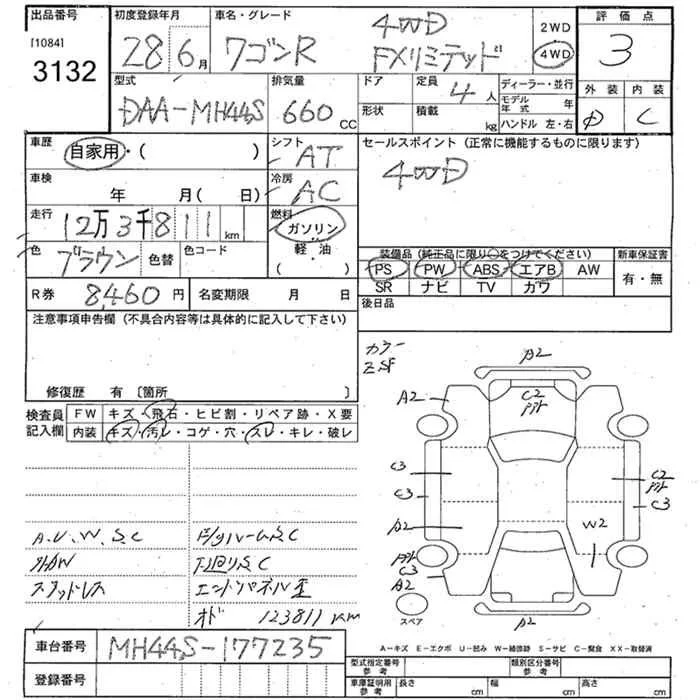 出品番号 初度登録年月 車名・グレード 評価点
[1084] 3132 28年6月 ワゴンR 4WD FXリミテッド 2WD 4WD 3
型式 排気量 ドア 定員 ディーラー・並行 外装 内装
DAA-MH44S 660CC 形状 4人 積載 kg モデル年式 年 ハンドル 左・右 D C
車歴 自家用・( ) シフト AT セールスポイント (正常に機能するものに限ります)
車検 年 月( 日) 冷房 AC 4WD
走行 12万3千811km 燃料 ガソリン
軽油
( )
色 ブラウン 色替 色コード
装備品 (純正品に限り○をつけてください) 新車保証書
PS PW ABS エアB AW 有・無
SR ナビ TV カワ
R券 8,460円 名変期限 月 日 後日品
注意事項申告欄 (不具合内容等は具体的に記入して下さい)
修復歴 有 [箇所 ]
検査員記入欄 FW キズ・飛石・ヒビ割・リペア跡・X要
内装 キズ・汚レ・コゲ・穴・スレ・キレ・破レ
カラー
ZSF
A2
A2 C2
C3 C2
C3 C3
A2 W2
C3
A2
A2
スペア
A.U.W.S.C
外AW 下廻りS.C
スタッドレス エンドパネル歪
オド 123811km
A-キズ E-エクボ U-凹み W-補修跡 S-サビ C-腐食 XX-取替済
車台番号 MH44S-177235
登録番号
型式指定番号 参考 類別区分番号 参考
車庫証明用 参考 長さ cm 幅 cm 高さ cm